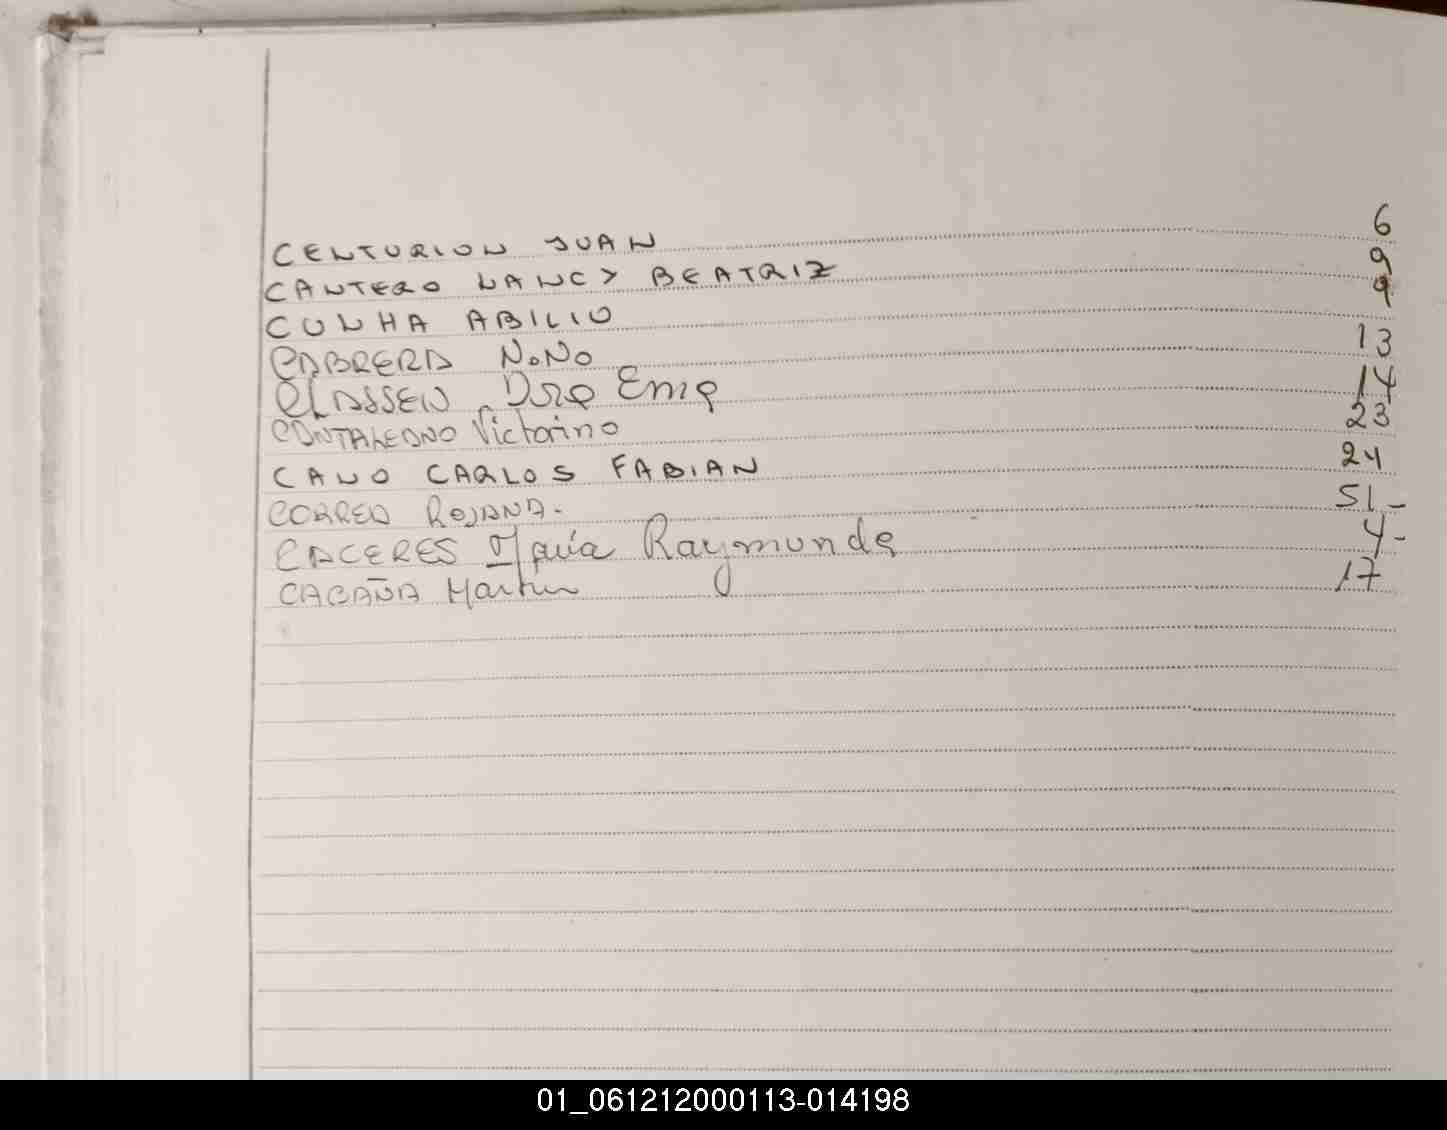 CENTURION JUAN 6
CANTERO NANCY BEATRIZ 9
CUNHA ABILIO 9
CABRERA NONO 13
CLASSEN 14
CONTALEONO Victorino 23
CANO CARLOS FABIAN 24
CORREA ROSANA. 51-
CACERES María Raymunda 4-
CABAÑA Martin 17
01_061212000113-014198